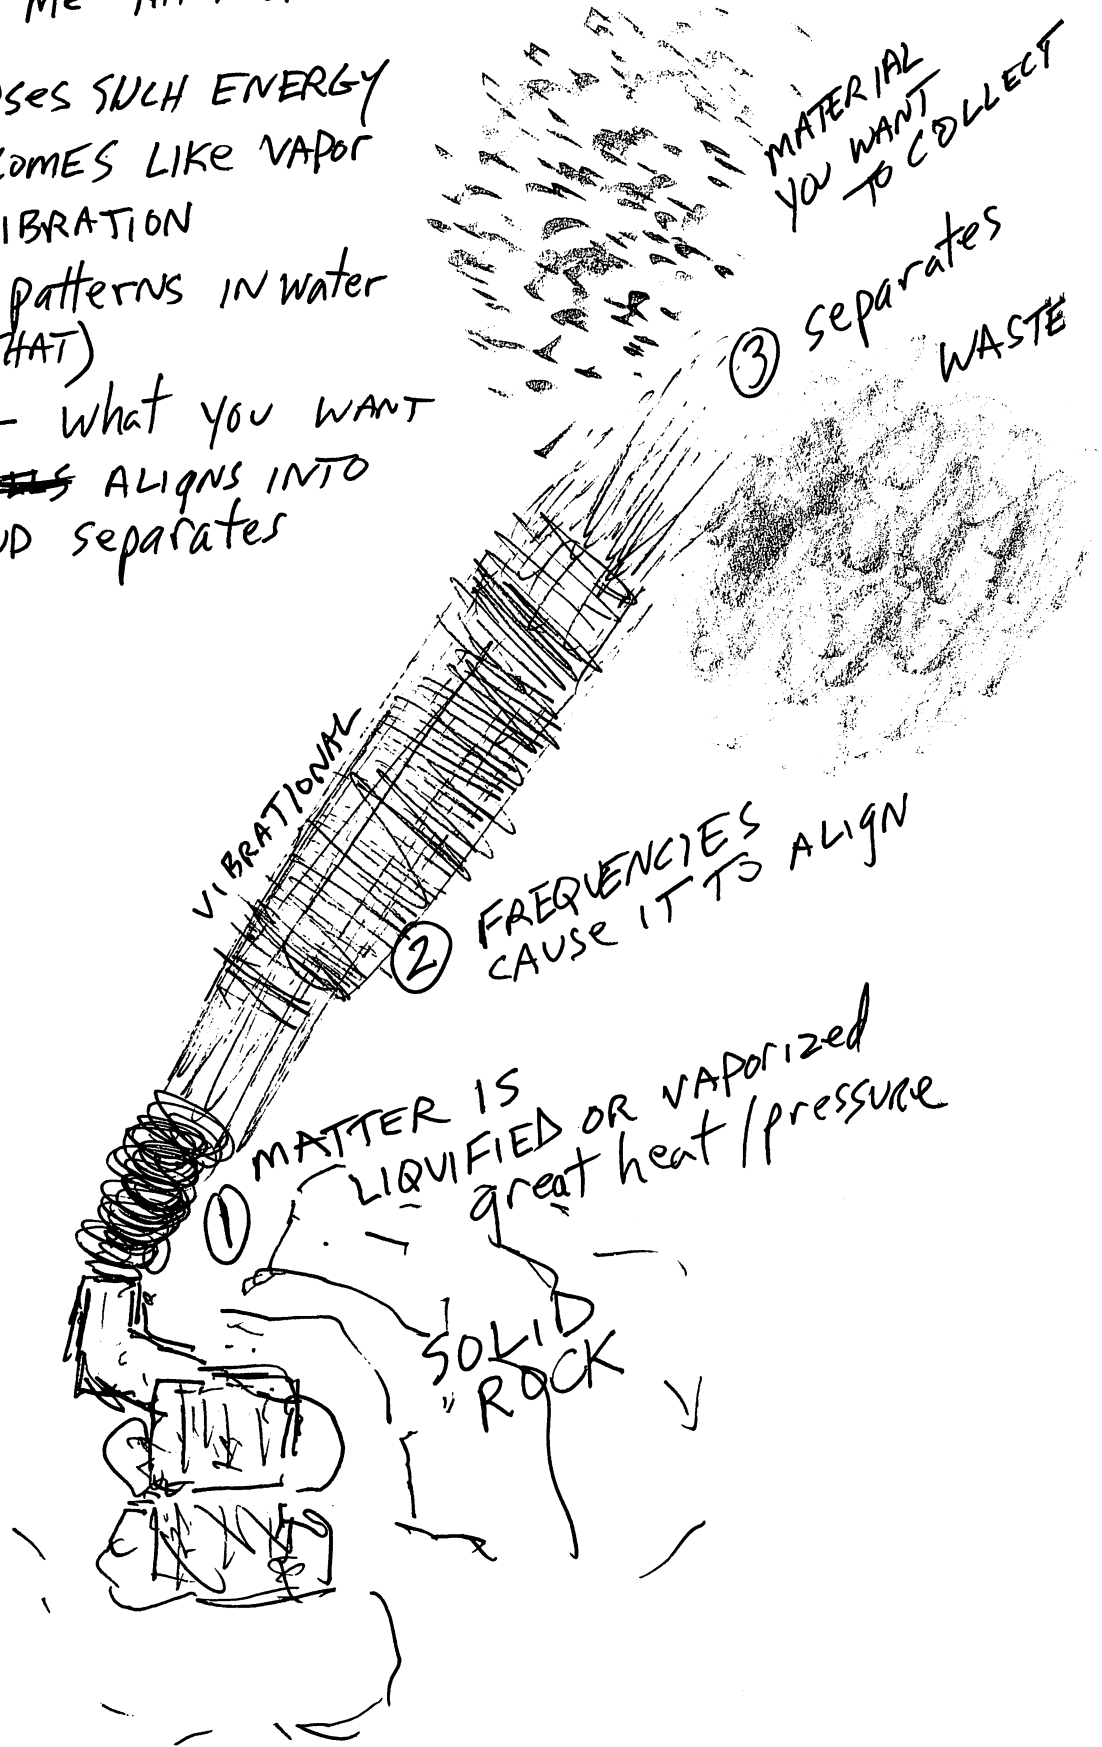 ME
SUCH ENERGY
COMES LIKE VAPOR
IBRATION
patterns IN water
THAT)
- what you WANT
ALIGNS INTO
separates
MATERIAL
YOU WANT
TO COLLECT
③ separates
WASTE
VIBRATIONAL
② FREQUENCIES
CAUSE IT TO ALIGN
① MATTER IS
LIQUIFIED OR VAPORIZED
great heat/pressure
SOLID
ROCK